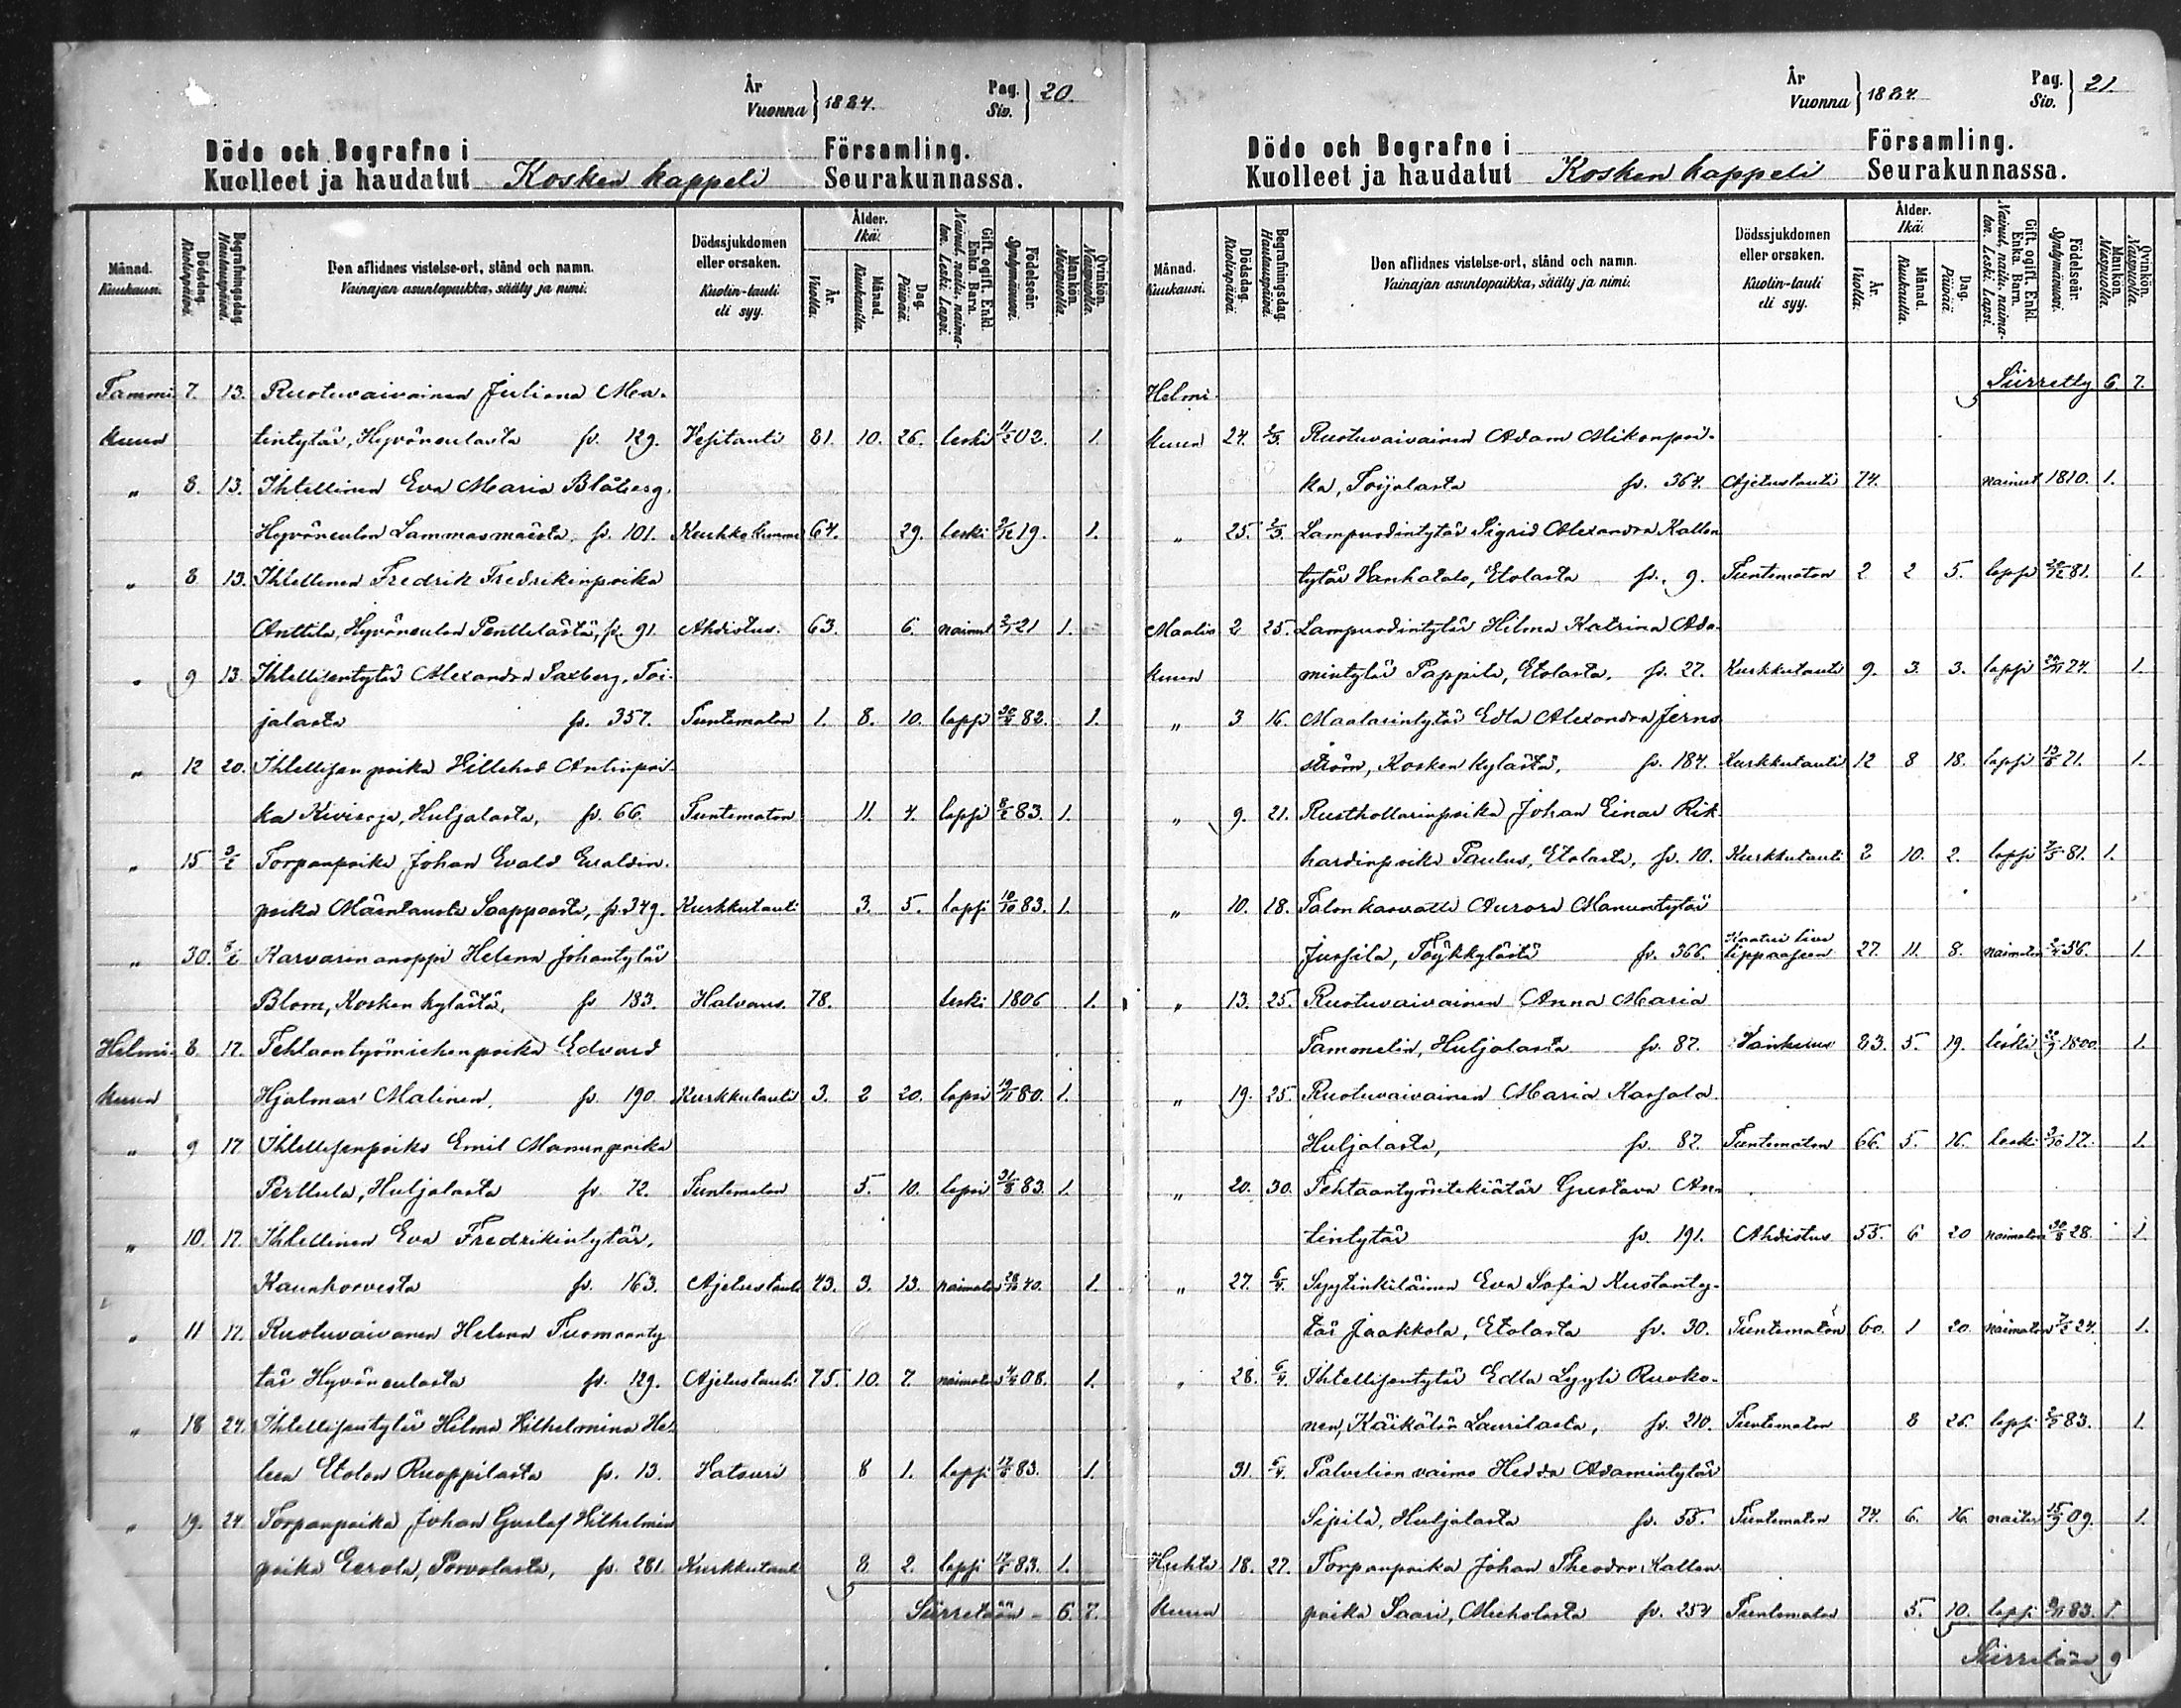 År
Vuonna } 1884. Pag.
Siv. } 20.
Döde och Begrafne i Församling.
Kuolleet ja haudatut Kosken kappeli Seurakunnassa.
Månad. Kuukausi. Dödsdag. Kuolinpäivä. Begrafningsdag. Hautauspäivä. Den aflidnes vistelse-ort, stånd och namn. Vainajan asuntopaikka, sääty ja nimi. Dödssjukdomen eller orsaken. Kuolin-tauti eli syy. Ålder. Ikä. År. Vuotta. Månad. Kuukautta. Dag. Päivää. Gift, ogift. Enkl. Enka. Barn. Nainut, naitu, naimaton. Leski. Lapsi. Födelseår. Syntymävuosi. Mankön. Miespuolta. Qvinkön. Naispuolta.
Tammi 7. 13. Ruotuvaivainen Juliana Ma-
kuun tintytär, Hyvöneulasta sv. 129. Vesitauti 81. 10. 26. leski 11/2 02. 1.
" 8. 13. Ihtellinen Eva Maria Blåberg,
Hyvöneulan Lammasmäestä, sv. 101. 64. 29. leski 9/12 19. 1.
" 8 13. Ihtellinen Fredrik Fredrikinpoika
Anttila, Hyvöneulan Penttilästä, sv. 91 Ahdistus. 63. 6. nainut 2/1 21 1.
" 9 13. Ihtellisentytär Alexandra Saxberg, Toi-
jalasta sv. 357. Tuntematon 1. 8. 10. lapsi 30/4 82. 1.
" 12 20. Ihtellisen poika Villehad Antinpoi-
ka Kivioja, Huljalasta, sv. 66. Tuntematon 11. 4. lapsi 8/2 83. 1.
" 15 3/2 Torpanpoika Johan Evald Evaldin-
poika Mäentausta Sorppoosta, sv. 349. Kurkkutauti 3. 5. lapsi 10/10 83. 1.
" 30. Karvarin anoppi Helena Johantytär
Blom, Kosken kylästä, sv 183. Halvaus. 78. leski 1806 1.
Helmi- 8. 17. Tehtaantyömiehen poika Edvard
kuun Hjalmar Malinen, sv. 190. Kurkkutauti 3. 2 20. lapsi 19/11 80. 1.
" 9 17 Ihtellisenpoika Emil Manunpoika
Perttula, Huljalasta sv. 72. Tuntematon 5. 10. lapsi 31/8 83. 1.
" 10. 17. Ihtellinen Eva Fredrikintytär,
Kaunkorvesta sv. 163. Ajetustauti 43. 3. 13. naimaton 28/10 40. 1.
" 11 17. Ruotuvaivanen Helena Tuomaanty-
tär Hyvöneulasta sv. 129. Ajetustauti 75. 10. 7. naimaton 4/4 08. 1.
" 18 24. Ihtellisentytär Hilma Vilhelmina He-
leen Etolan Ruoppilasta sv. 13. Hatsuri 8 1. lapsi 17/6 83. 1.
" 19. 24. Torpanpoika Johan Gustaf Vilhelmin
poika Eerola, Porvolasta, sv. 281. Kurkkutauti 8. 2. lapsi 17/6 83. 1.
Siirretään - 6. 7.
År
Vuonna } 1884. Pag.
Siv. } 21.
Döde och Begrafne i Församling.
Kuolleet ja haudatut Kosken kappeli Seurakunnassa.
Månad. Kuukausi. Dödsdag. Kuolinpäivä. Begrafningsdag. Hautauspäivä. Den aflidnes vistelse-ort, stånd och namn. Vainajan asuntopaikka, sääty ja nimi. Dödssjukdomen eller orsaken. Kuolin-tauti eli syy. Ålder. Ikä. År. Vuotta. Månad. Kuukautta. Dag. Päivää. Gift, ogift. Enkl. Enka. Barn. Nainut, naitu, naimaton. Leski. Lapsi. Födelseår. Syntymävuosi. Mankön. Miespuolta. Qvinkön. Naispuolta.
Helmi- Siirretty 6. 7.
kuun 24. 2/3. Ruotuvaivainen Adam Mikonpoi-
ka, Toijalasta sv. 364. Ajetustauti 74. nainut 1810. 1.
" 25. 2/3. Lampuodintytär Sigrid Alexandra Kallen
tytär Vanhatalo, Etolasta sv. 9. Tuntematon 2 2 5. lapsi 20/12 81. 1.
Maalis 2 25. Lampuodintytär Hilma Katrina Ada-
kuun mintytär Pappila, Etolasta, sv. 27. Kurkkutauti 9. 3. 3. lapsi 29/11 74. 1.
" 3 16. Maalarintytär Edla Alexandra Jern-
ström, Kosken kylästä, sv. 184. Kurkkutauti 12 8 18. lapsi 15/6 71. 1.
" 9. 21. Rusthollarinpoika Johan Einar Rik-
hardinpoika Paulus, Etolasta, sv. 10. Kurkkutauti 2 10. 2. lapsi 7/5 81. 1.
" 10. 18. Talon kasvatti Aurora Manuntytär
Jussila, Töykkylästä sv. 366. 27. 11. 8. naimaton 2/4 56. 1.
" 13. 25. Ruotuvaivainen Anna Maria
Tamonelin, Huljalasta sv. 87. Vanhuus 83. 5. 19. leski 1800. 1.
" 19. 25. Ruotuvaivainen Maria Karjala
Huljalasta, sv. 87. Tuntematon 66. 5. 16. leski 3/10 17. 1.
" 20. 30. Tehtaantyöntekiätär Gustava An-
tintytär sv. 191. Ahdistus 55. 6 20 naimaton 30/8 28. 1.
" 27. 6/4. Syytinkiläinen Eva Sofia Kustaanty-
tär Jaakkola, Etolasta sv. 30. Tuntematon 60. 1 20 naimaton 7/2 24. 1.
" 28. 6/4. Ihtellisentytär Edla Lyyli Ruoko-
nen, Käikälän Laurilasta, sv. 210. Tuntematon 8 26. lapsi 83. 1.
31. 6/4. Palvelian vaimo Hedda Adamintytär
Sipilä, Huljalasta sv. 55. Tuntematon 74. 6. 16. naitu 15/9 09. 1.
Huhti- 18. 27. Torpanpoika Johan Theodor Kallen
kuun poika Saari, sv. 254 Tuntematon 5. 10. lapsi 8/11 83. 1.
Siirretään 9